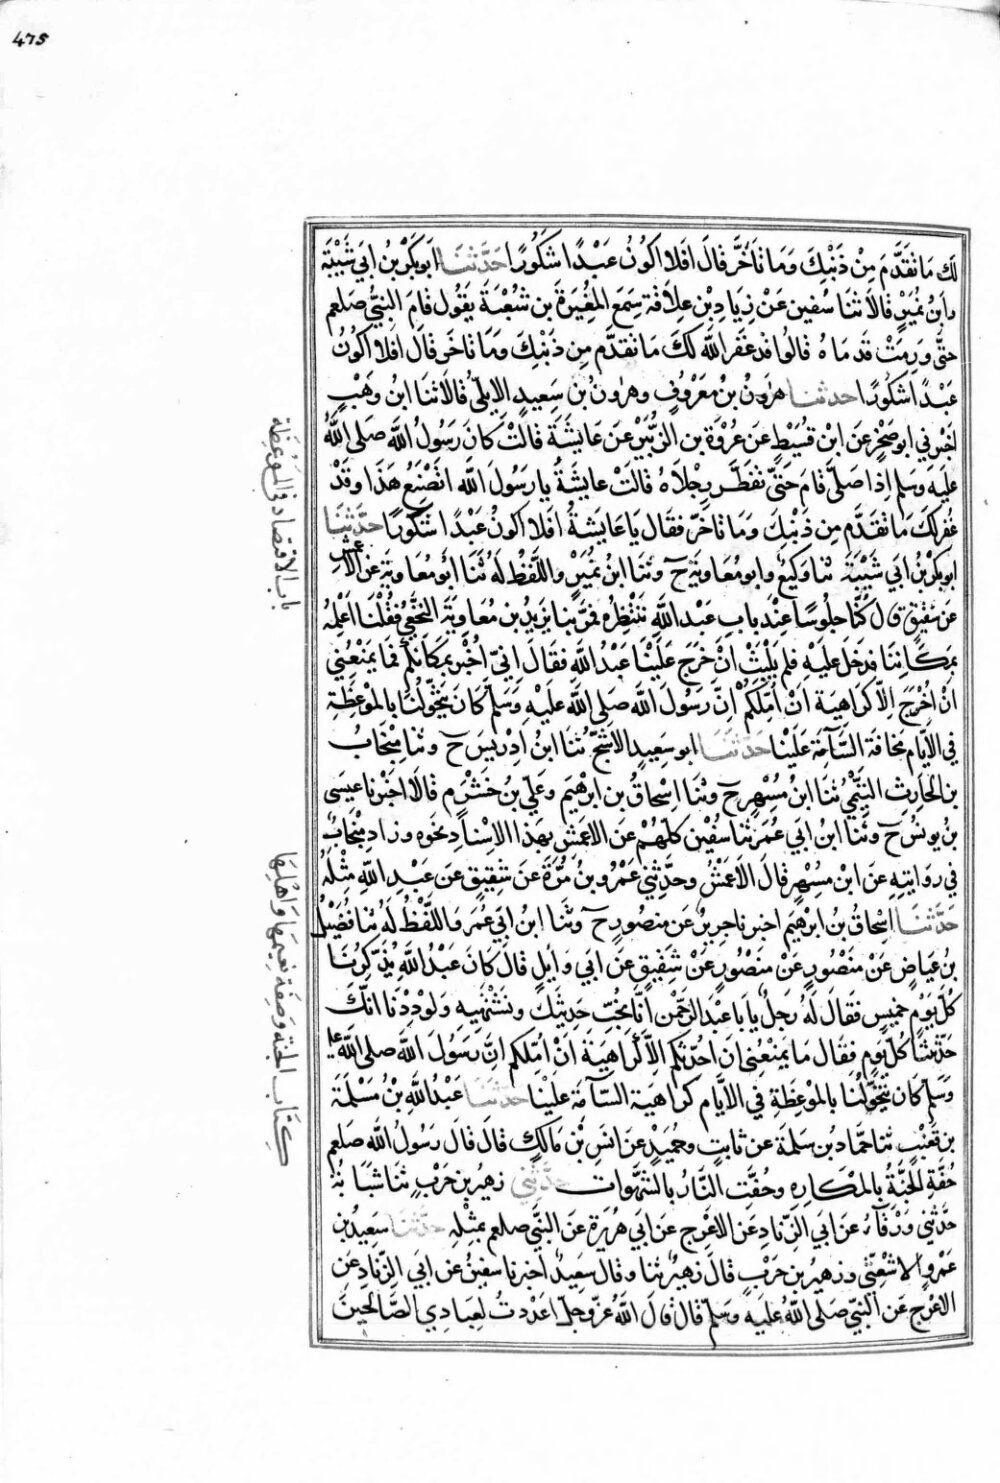 475
لَك مَا تَقَدَّمَ مِنْ ذَنْبِكَ وَمَا تَأَخَّرَ قَالَ اَفَلَا اَكُونُ عَبْدًا شَكُورًا حَدَّثَنَا اَبُو بَكْرِ بْنُ اَبِي شَيْبَةَ
وابْنُ نُمَيْرٍ قَالَا ثَنَا سُفين عَنْ زِيَادِ بْنِ عِلَاقَة سَمِعَ المُغِيرَةَ بن شُعْبَةَ يَقُول قَامَ النَّبِيُّ صلعم
حَتَّى وَرِمَتْ قَدَمَاهُ قَالُوا قَد غَفَرَ اللَّه لَكَ مَا تَقَدَّم مِن ذَنْبِكَ وَمَا تَاَخَّرَ قَالَ اَفَلَا اَكُونُ
عَبْدًا شَكُورًا حدثنا هٰرُونُ بْنُ مَعْرُوفٍ وهٰرُونُ بْن سَعِيدٍ الاَيْلِيُّ قَالَا ثَنَا ابْن وَهْبٍ
اَخْبَرَنِي ابو صَخْرٍ عَن ابْن قُسَيْطٍ عَن عُرْوَةَ بن الزُّبَيْرِ عَن عَايِشَةَ قَالَتْ كَانَ رَسُولُ اللَّه صَلى اللَّهُ
عَلَيه وَسَلم اِذَا صَلَّى قَامَ حَتَّى تَفَطَّر رِجْلَاهُ قَالَتْ عَايشَةُ يا رَسُولَ اللَّه اَتَصْنَعُ هَذَا وَقَدْ
غُفِرَ لَكَ مَا تَقَدَّم مِن ذَنْبِكَ وَمَا تَأَخَّرَ فقَال يَا عَايشَةُ اَفَلَا اَكُونُ عَبْدًا شَكُورًا حَدَّثَنَا
ابو بَكْرِ بْنُ اَبي شَيْبَةَ ثنا وَكِيعٌ وابو مُعَاويَة ح وثَنَا ابن نُمَيْرٍ واللَّفْظُ لَهُ ثَنَا اَبُو مُعَاويَةَ عَن الاَعمش
عَن شَقيقٍ قَال كُنَّا جلُوسًا عِنْدَ باب عَبْد اللَّه نَنْتَظِرُهُ فَمَرَّ بنا يَزيدُ بن مُعَاويَةَ النَّخَعِيُّ فَقُلْنَا اَعْلِمْهُ
بمَكَانِنَا فَدَخَلَ عَلَيْهِ فَلَم يَلْبَثْ اَنْ خَرَجَ عَلَيْنَا عَبْدُ اللَّه فَقَال اِنِّي اُخْبَرُ بِمَكَانِكُم فَمَا يَمْنَعُنِي
اَنْ اَخْرُجَ اِلَّا كَرَاهِيَة اَنْ اُمِلَّكُمْ اِنَّ رَسُولَ اللَّه صَلى اللَّه عَلَيْهِ وَسَلم كَانَ يَتَخَوَّلُنَا بالمَوْعِظَةِ
فِي الاَيَّام مَخَافَة السَّآمَة عَلَيْنَا حَدَّثَنَا ابو سَعِيدٍ الاَشَجُّ ثنا ابنُ اِدْرِيسَ ح وثنا مِنْجَابُ
بن الحَارِثِ التَّمِيميُّ ثَنَا ابْنُ مُسْهِرٍ ح وَثَنَا اِسْحَاقُ بْن ابرٰهيم وعَلِيُّ بن خَشْرَمٍ قَالَا اَخبَرَنا عِيسَى
بنُ يونُسَ ح وثنا ابن ابي عُمَر ثنا سُفْيٰن كلُّهُمْ عَن الاَعمَش بهَذَا الاِسْنَادِ نَحْوَه وزَادَ مِنْجَابٌ
في روَايتِهِ عَن ابْن مُسْهِرٍ قَالَ الاَعْمَشُ وحَدَّثَنِي عَمْرُو بن مُرَّةَ عَن شَقِيقٍ عَن عَبْدِ اللَّه مِثْلَهُ
حَدَّثَنَا اِسْحَاقُ بن ابرٰهيم اخبرنا جَرِيرٌ عَن مَنصُورٍ ح وَثَنَا ابن اَبي عُمَر وَاللَّفْظُ لَهُ ثنا فُضَيْلُ
بنُ عِيَاضٍ عَنْ مَنْصُورٍ عَنْ شَقِيقٍ عَن ابي وَايلٍ قَالَ كَانَ عَبْدُ اللَّهِ يُذَكِّرُنَا
كُلَّ يَوْمِ خميسٍ فَقَالَ لَهُ رَجُلٌ يا با عَبْدِ الرَّحمٰن اِنَّا نُحِبُّ حَدِيثَكَ وَنَشْتَهِيهِ وَلَوَدِدْنَا اَنَّكَ
حَدَّثْتَنَا كُلَّ يَومٍ فَقَال مَا يَمْنَعُنِي اَن اُحَدِّثَكُم اِلَّا كَرَاهِيَةُ اَنْ اُمِلَّكُم اِنَّ رَسُولَ اللَّه صَلَى اللَّه عليه
وَسَلم كَان يَتَخَوَّلُنَا بالمَوْعِظَةِ فِي الاَيَّام كَرَاهِيَة السَّآمَة عَلَيْنَا حدثنا عَبْدُ اللَّهِ بْنُ مَسْلَمَةَ
بن قَعْنَبٍ ثَنَا حَمَّاد بن سَلمَة عَن ثَابِتٍ وَحُمَيْدٍ عَن اَنَسِ بْن مَالِكٍ قَالَ قَالَ رَسُولُ اللَّه صَلعم
حُفَّةِ الجَنَّةُ بالمَكَارِهِ وحُفَّت النَّارُ بالشَّهَوات حَدَّثَنِي زهيرُ بن حَرْبٍ ثنا شَبَابَةُ
حَدَّثَنِي وَرْقَآءُ عَن اَبي الزِّنَادِ عَن الاَعْرَج عَن اَبي هُرَيرَة عَن النَّبِيِّ صلعم بمثْلِهِ حَدَّثَنَا سَعِيدُ بن
عَمْرٍو الاَشْعَثِيُّ وزهيرُ بن حَرْبٍ قَالَ زهيرٌ ثنا وقال سَعِيدٌ اَخبرنا سفين عَن ابي الزِّنادِ عَن
الاَعْرَج عَن النَّبِيِّ صَلى اللَّهُ عَلَيْه وَسَلَّم قَال قَالَ اللَّهُ عَزَّ وجَلَّ اَعْدَدتُ لِعِبَادِي الصَّالحِينَ
باب الاقتصاد في الموعظة
كتاب الجنة وصفة نعيمها واهلها